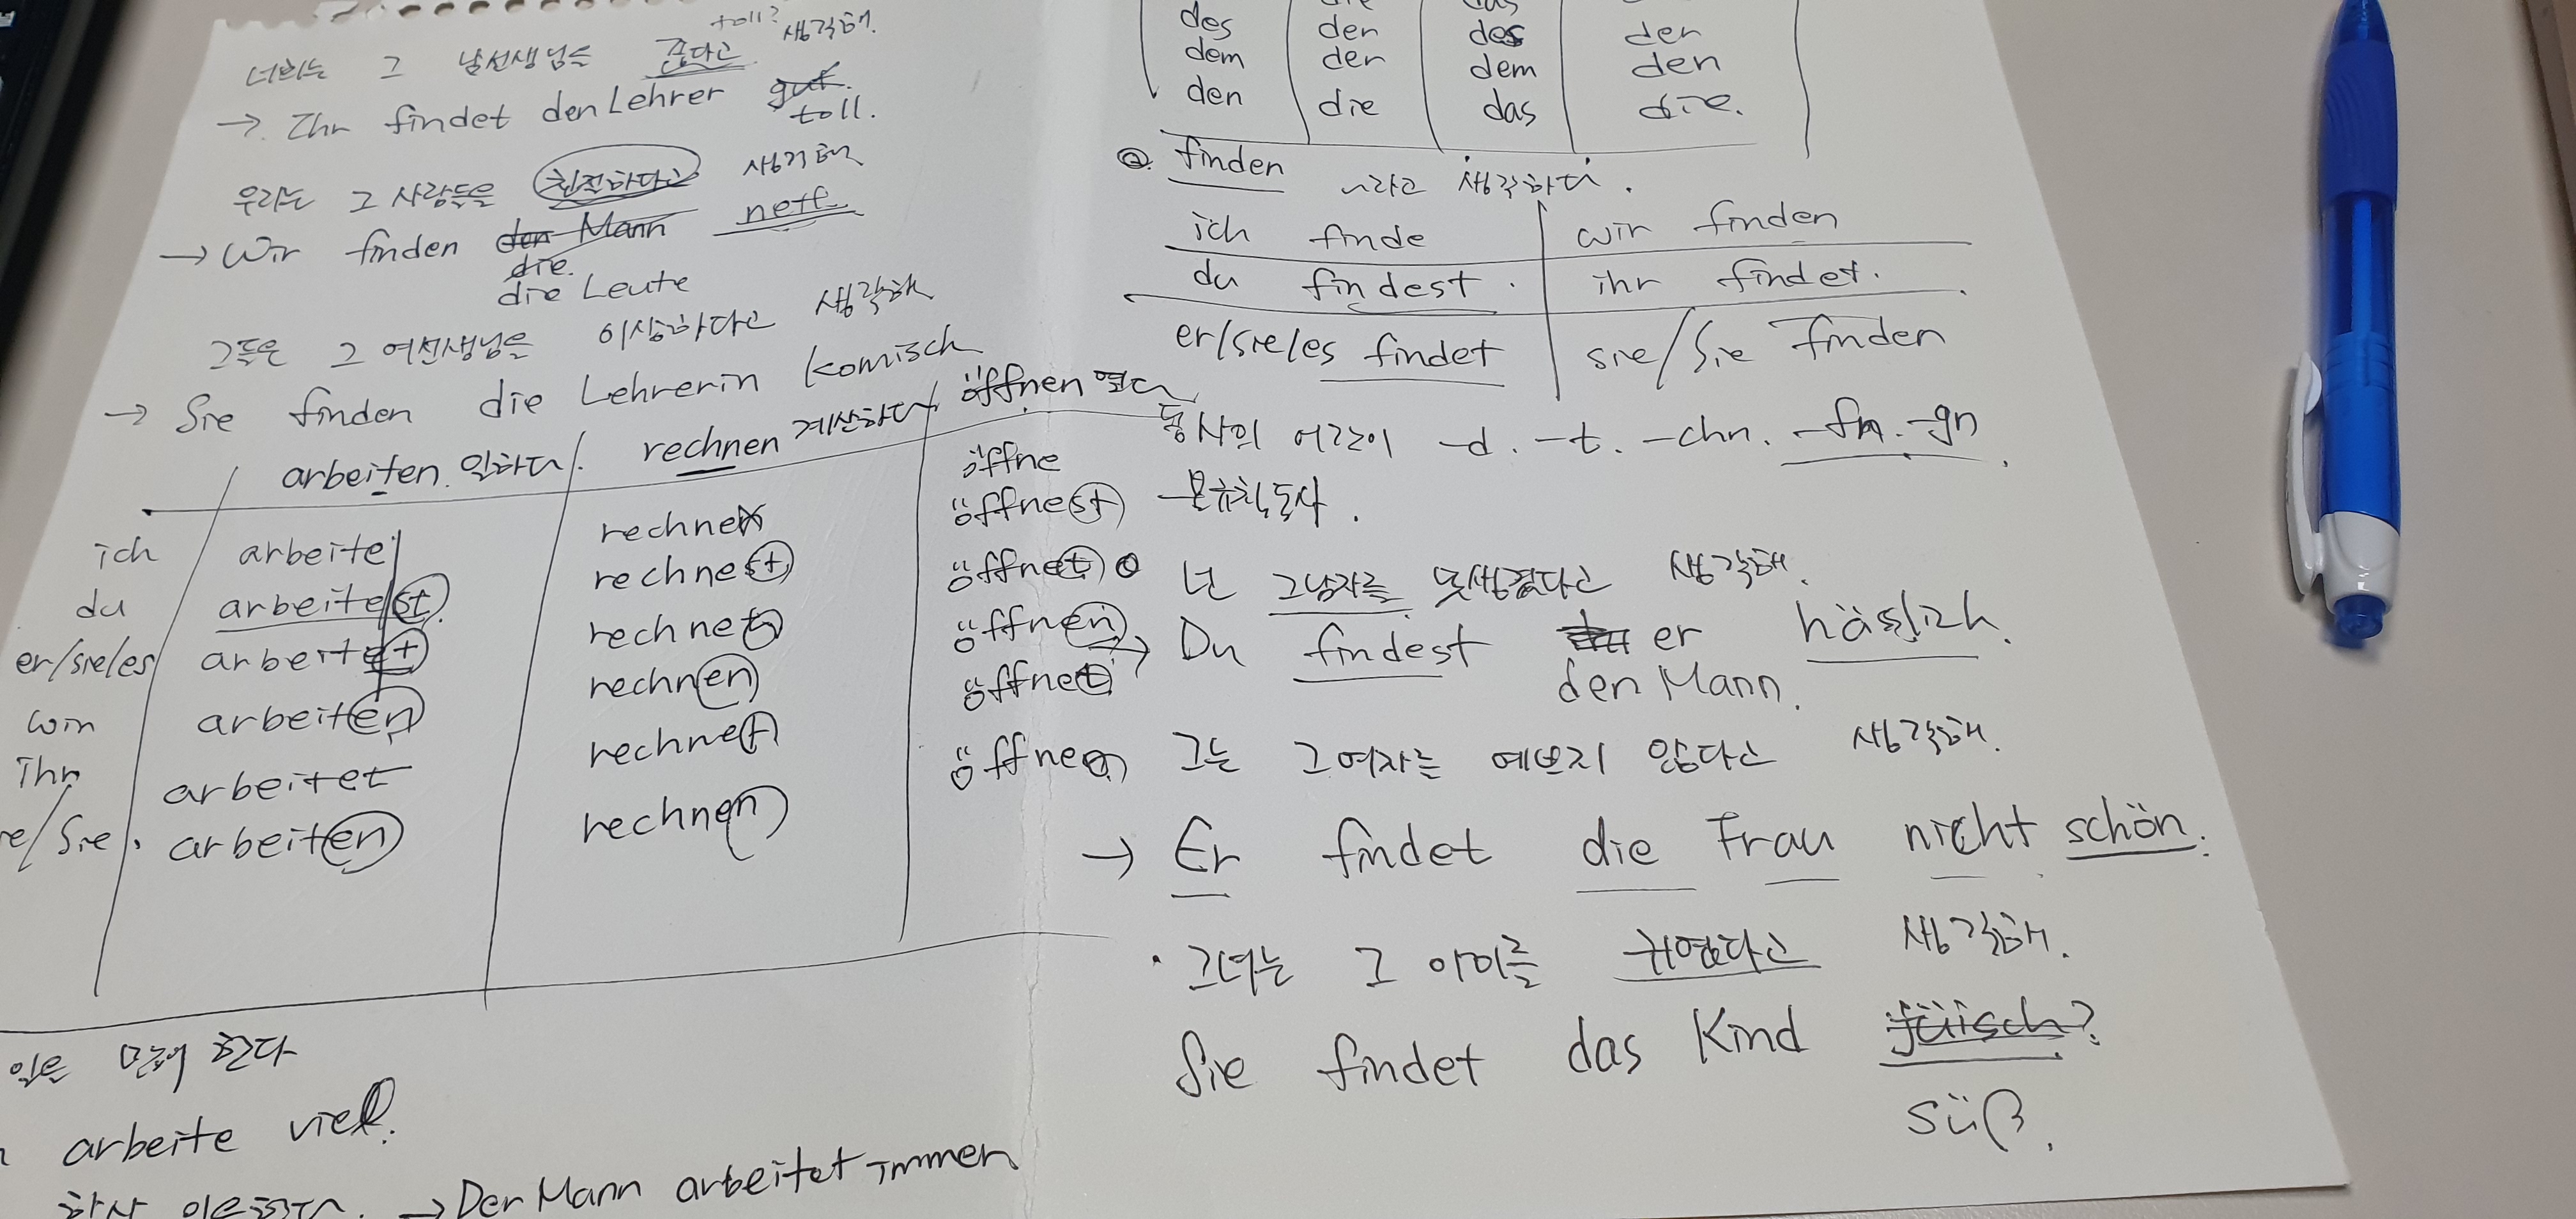 toll? 생각해.
너희는 그 남선생님을 좋다고
→ Ihr findet den Lehrer gut.
toll.
우리는 그 사람들을 친절하다고 생각해
→ Wir finden den Mann nett
die.
die Leute
그들은 그 여선생님을 이상하다고 생각해
→ Sie finden die Lehrerin komisch
arbeiten 일하다 rechnen 계산하다 öffnen 열다
ich arbeite rechne öffne
du arbeitest rechnest öffnest
er/sie/es arbeitet rechnet öffnet
wir arbeiten rechnen öffnen
Ihr arbeitet rechnet öffnet
/Sie arbeiten rechnen öffnen
일을 많이 한다
arbeite viel.
→ Der Mann arbeitet immer
des der des der
dem der dem den
den die das die.
finden ~라고 생각하다.
ich finde wir finden
du findest. ihr findet.
er/sie/es findet sie/Sie finden
동사의 어간이 -d. -t. -chn. -fn. -gn
불규칙동사.
넌 그남자를 못생겼다고 생각해.
→ Du findest er häßlich.
den Mann.
그는 그여자는 예쁘지 않다고 생각해.
→ Er findet die Frau nicht schön.
· 그녀는 그 아이를 귀엽다고 생각해.
Sie findet das Kind ?
süß.